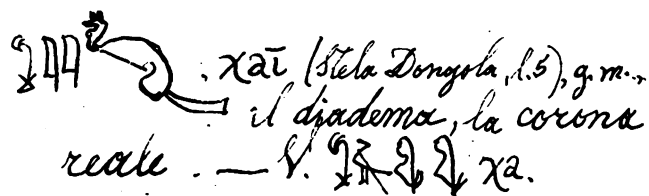 . χαī (Stela Dongola, l. 5), g. m.,
il diadema, la corona
reale. — V. χα.